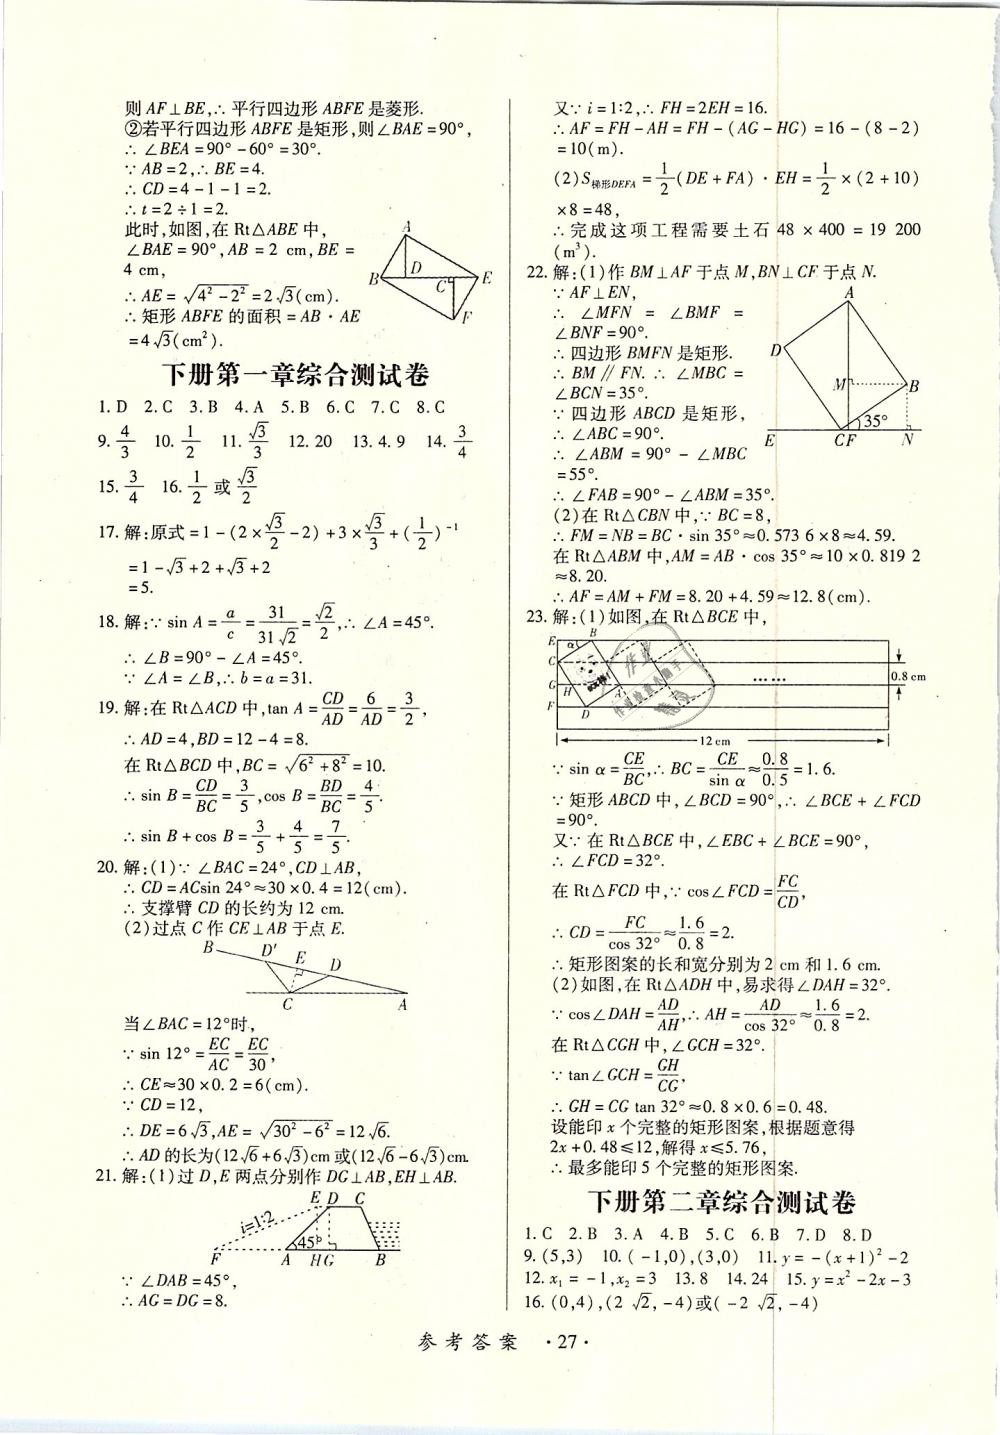 则 AF⊥BE,∴ 平行四边形 ABFE 是菱形.
②若平行四边形 ABFE 是矩形,则∠BAE=90°,
∴ ∠BEA=90°-60°=30°.
∵ AB=2,∴ BE=4.
∴ CD=4-1-1=2.
∴ t=2÷1=2.
此时,如图,在 Rt△ABE 中,
∠BAE=90°,AB=2 cm,BE=
4 cm,
∴ AE=√(4²-2²)=2√3(cm).
∴ 矩形 ABFE 的面积=AB·AE
=4√3(cm²).
A
B
D
C
E
F
下册第一章综合测试卷
1. D 2. C 3. B 4. A 5. B 6. C 7. C 8. C
9. 4/3 10. 1/2 11. √3/3 12. 20 13. 4. 9 14. 3/4
15. 3/4 16. 1/2 或 √3/2
17. 解:原式=1-(2×√3/2-2)+3×√3/3+(1/2)⁻¹
=1-√3+2+√3+2
=5.
18. 解:∵ sin A=a/c=31/31√2=√2/2,∴ ∠A=45°.
∴ ∠B=90°-∠A=45°.
∵ ∠A=∠B,∴ b=a=31.
19. 解:在 Rt△ACD 中,tan A=CD/AD=6/AD=3/2,
∴ AD=4,BD=12-4=8.
在 Rt△BCD 中,BC=√(6²+8²)=10.
∴ sin B=CD/BC=3/5,cos B=BD/BC=4/5.
∴ sin B+cos B=3/5+4/5=7/5.
20. 解:(1)∵ ∠BAC=24°,CD⊥AB,
∴ CD=ACsin 24°≈30×0. 4=12(cm).
∴ 支撑臂 CD 的长约为 12 cm.
(2)过点 C 作 CE⊥AB 于点 E.
B
D′
E
D
C
A
当∠BAC=12°时,
∵ sin 12°=EC/AC=EC/30,
∴ CE≈30×0. 2=6(cm).
∵ CD=12,
∴ DE=6√3,AE=√(30²-6²)=12√6.
∴ AD 的长为(12√6+6√3)cm 或(12√6-6√3)cm.
21. 解:(1)过 D,E 两点分别作 DG⊥AB,EH⊥AB.
E D C
i=1:2
45°
F A H G B
∵ ∠DAB=45°,
∴ AG=DG=8.
又∵ i=1:2,∴ FH=2EH=16.
∴ AF=FH-AH=FH-(AG-HG)=16-(8-2)
=10(m).
(2)S梯形DEFA=1/2(DE+FA)·EH=1/2×(2+10)
×8=48,
∴ 完成这项工程需要土石 48×400=19 200
(m³).
22. 解:(1)作 BM⊥AF 于点 M,BN⊥CF 于点 N.
∵ AF⊥EN,
∴ ∠MFN = ∠BMF =
∠BNF=90°.
∴ 四边形 BMFN 是矩形.
∴ BM∥FN. ∴ ∠MBC=
∠BCN=35°.
∵ 四边形 ABCD 是矩形,
∴ ∠ABC=90°.
∴ ∠ABM=90°-∠MBC
=55°.
∴ ∠FAB=90°-∠ABM=35°.
A
D
M
B
35°
E CF N
(2)在 Rt△CBN 中,∵ BC=8,
∴ FM=NB=BC·sin 35°≈0. 573 6×8≈4. 59.
在 Rt△ABM 中,AM=AB·cos 35°≈10×0. 819 2
≈8. 20.
∴ AF=AM+FM=8. 20+4. 59≈12. 8(cm).
23. 解:(1)如图,在 Rt△BCE 中,
E α B
C
G H A
F D
……
0.8 cm
12 cm
∵ sin α=CE/BC,∴ BC=CE/sin α≈0. 8/0. 5=1. 6.
∵ 矩形 ABCD 中,∠BCD=90°,∴ ∠BCE+∠FCD
=90°.
又∵ 在 Rt△BCE 中,∠EBC+∠BCE=90°,
∴ ∠FCD=32°.
在 Rt△FCD 中,∵ cos∠FCD=FC/CD,
∴ CD=FC/cos 32°≈1. 6/0. 8=2.
∴ 矩形图案的长和宽分别为 2 cm 和 1. 6 cm.
(2)如图,在 Rt△ADH 中,易求得∠DAH=32°.
∵ cos∠DAH=AD/AH,∴ AH=AD/cos 32°≈1. 6/0. 8=2.
在 Rt△CGH 中,∠GCH=32°.
∵ tan∠GCH=GH/CG,
∴ GH=CG tan 32°≈0. 8×0. 6=0. 48.
设能印 x 个完整的矩形图案,根据题意得
2x+0. 48≤12,解得 x≤5. 76,
∴ 最多能印 5 个完整的矩形图案.
下册第二章综合测试卷
1. C 2. B 3. A 4. B 5. C 6. B 7. D 8. D
9. (5,3) 10. (-1,0),(3,0) 11. y=-(x+1)²-2
12. x₁=-1,x₂=3 13. 8 14. 24 15. y=x²-2x-3
16. (0,4),(2√2,-4)或(-2√2,-4)
参考答案 ·27·